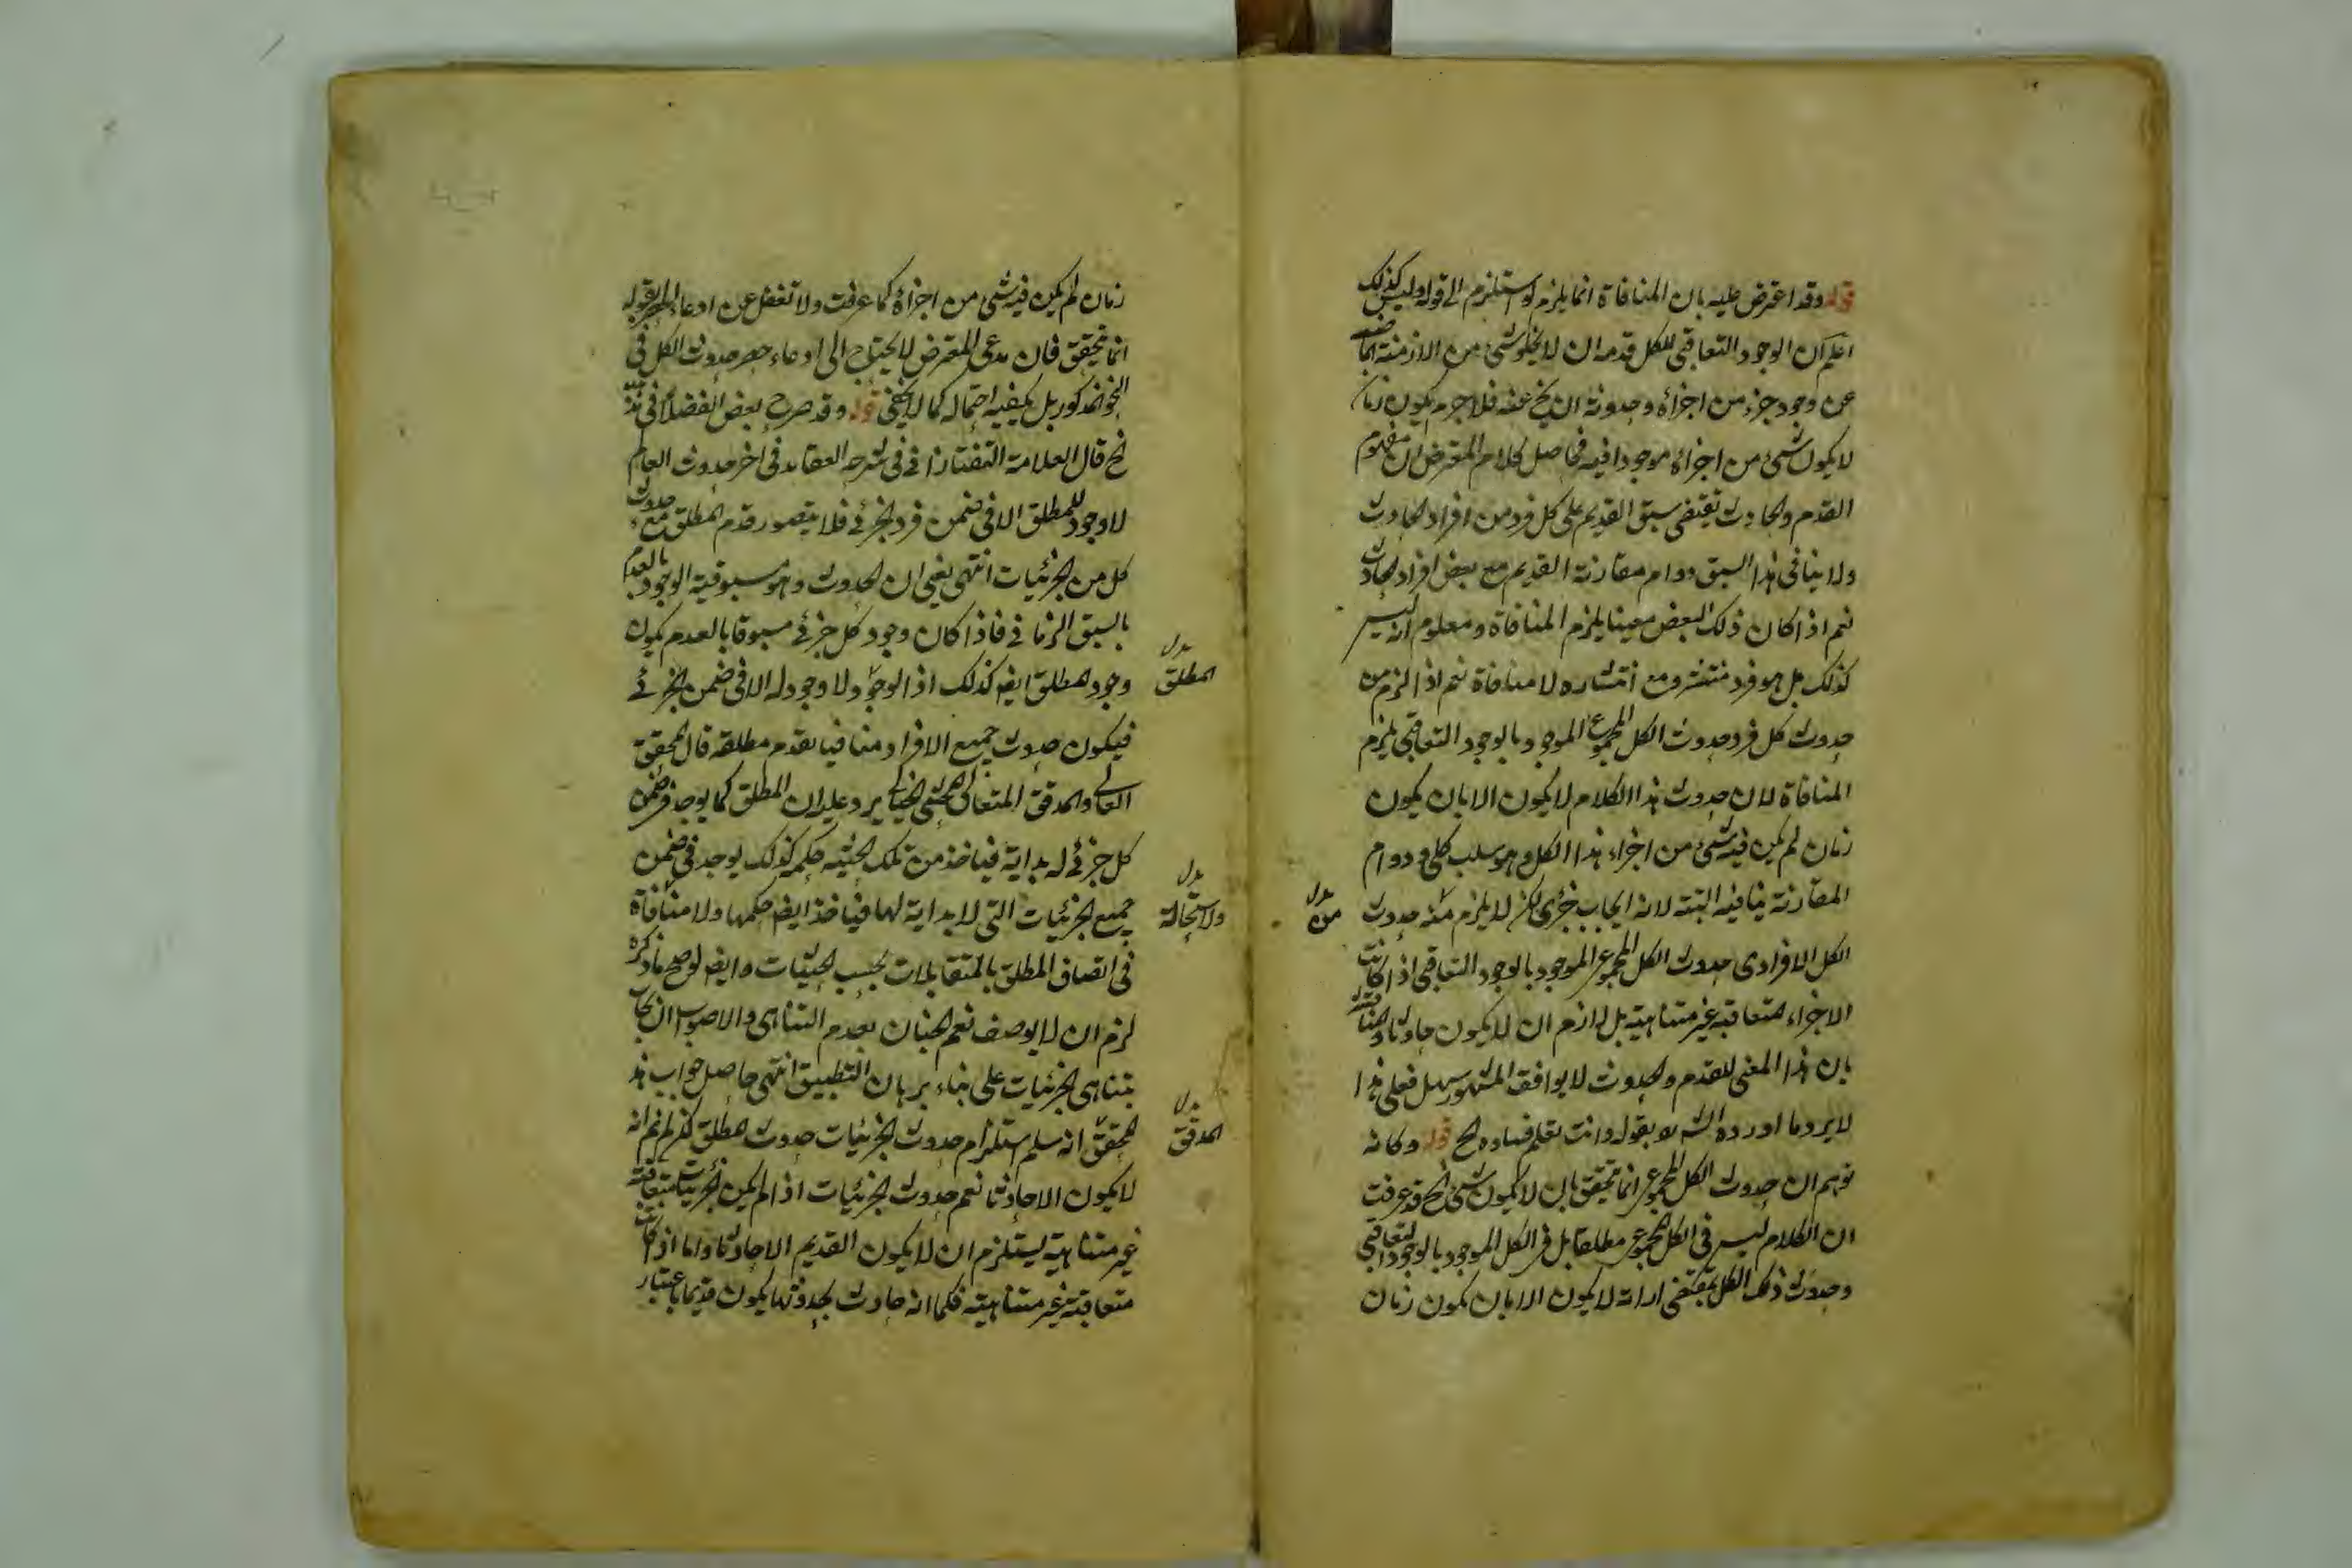 قوله وقد اعترض عليه بان المنافاة انما يلزم لو استلزم الى قوله وليس كذلك
اعلم ان الوجود التعاقبى للكل قدمه ان لا يخلو شئ من الازمنة الماضية
عن وجود جزء من اجزائه وحدوثه ان يخ عنه فلا جرم يكون زمان
لا يكون شئ من اجزائه موجودا فيه فحاصل كلام المعترض ان مفهوم
القدم والحادث يقتضى سبق القديم على كل فرد من افراد الحادث
ولا ينافى هذا السبق دوام مقارنة القديم مع بعض افراد الحادث
نعم اذا كان ذلك البعض معينا يلزم المنافاة ومعلوم انه ليس
كذلك بل هو فرد منتشر ومع انتشاره لا منافاة نعم اذا لزم من
حدوث كل فرد حدوث الكل المجموع الموجود بالوجود التعاقبى يلزم
المنافاة لان حدوث هذا الكلام لا يكون الا بان يكون
زمان لم يكن فيه شئ من اجزاء هذا الكل وهو سلب كلى ودوام
المقارنة ينافيه البتة لانه ايجاب جزئى لكن لا يلزم منه حدوث
بدل
من
الكل الافرادى حدوث الكل المجموعى الموجود بالوجود التعاقبى اذا كانت
الاجزاء المتعاقبة غير متناهية بل لازم ان لا يكون حادثا والمناقشة
بان هذا المعنى للقدم والحدوث لا يوافق المشهور سهل فعلى هذا
لا يرد ما اورده الشه بو بقوله وانت تعلم فساده الخ قوله وكانه
توهم ان حدوث الكل المجموعى انما يتحقق بان لا يكون شئ الخ قد عرفت
ان الكلام ليس فى الكل المجموعى مطلقا بل فى الكل الموجود بالوجود التعاقبى
وحدوث ذلك الكل يقتضى لا يكون الا بان يكون زمان
زمان لم يكن فيه شئ من اجزائه كما عرفت ولا تغفل عن ادعاء الحصر بقوله
انما يتحقق فان مدعى المعترض لا يحتاج الى ادعاء حصر حدوث الكل فى
النحو المذكور بل يكفيه احتماله كما لا يخفى قوله وقد صرح بعض الفضلاء فى هذه
الخ قال العلامة التفتازانى فى شرح العقايد فى اخر حدوث العالم
لا وجود للمطلق الا فى ضمن فرد الجزئى فلا يتصور قدم المطلق مع حدوث
كل من الجزئيات انتهى يعنى ان الحدوث وهو مسبوقية الوجود بالعدم
بالسبق الزمانى فاذا كان وجود كل جزئى مسبوقا بالعدم يكون
وجود المطلق ايض كذلك اذ لا وجود له الا فى ضمن الجزئى
بدل
المطلق
فيكون حدوث جميع الافراد منافيا لقدم مطلقه قال المحقق
العالى والمدقق المتعالى المحشى الخيالى يرد عليه ان المطلق كما يوجد فى ضمن
كل جزئى له بداية فياخذ من تلك الحيثية حكمه كذلك يوجد فى ضمن
جميع الجزئيات التى لا بداية لها فياخذ ايض حكمها ولا منافاة
بدل
ولا استحالة
فى اتصاف المطلق بالمتقابلات بحسب الحيثيات وايض لو صح ما ذكره
لزم ان لا يوصف نعم الجنان بعدم التناهى والاصوب ان يجاب
بتناهى الجزئيات على بناء برهان التطبيق انتهى حاصل جواب هذا
المحقق انه سلم استلزام حدوث الجزئيات حدوث المطلق لكن لم نم انه
بدل
المدقق
لا يكون الا حادثا نعم حدوث الجزئيات اذا لم يكن الجزئيات متعاقبة
غير متناهية يستلزم ان لا يكون القديم الا حادثا واما اذا كانت
متعاقبة غير متناهية فكما انه حادث بحدوثها يكون قديما باعتبار